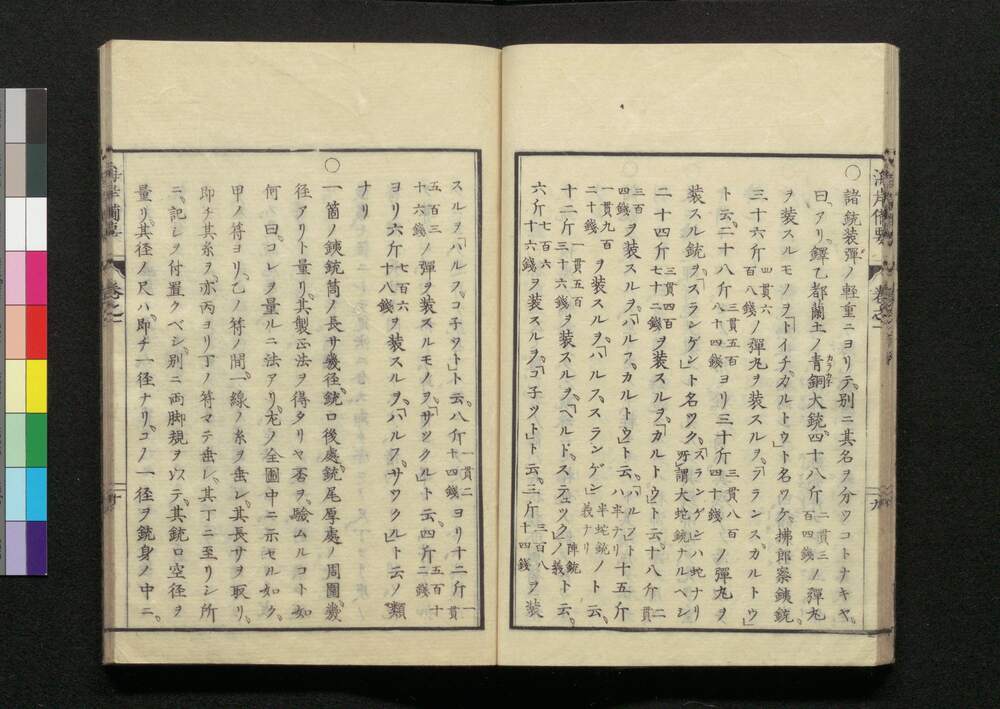 ○諸銃装弾ノ軽重ニヨリテ別ニ其名ヲ分ツコトナキヤ
曰アリ鐸乙都蘭土ノ青銅大銃四十八斤ノ弾丸
カラカネ
ヲ装スルモノヲ「トイチガルトウ」ト名ワケ拂郎察銕銃
三十六斤四貫六百八錢ノ弾丸ヲ装スルヲ「フランスガルトウ」
ト云二十八斤三貫五百八十四錢ヨリ三十斤三貫八百四十錢ノ弾丸ヲ
装スル銃ヲ「スランゲン」ト名ツクスランゲンハ蛇ナリ所謂大蛇銃ナルヘシ
二十四斤ヲ装スルヲ「カルトウ」ト云十八斤
ヲ装スルヲ「ハルフカルトウ」ト云ハルフト十五斤
ヲ装スルヲ「ハルフスランゲン」半蛇銃ノト云
十二斤一貫五百三十六錢ヲ装スルヲ「ヘルドステュック」陣銃ノ義ト云
六斤七百六十六錢ヲ装スルヲ「コ子ツト」ト云三斤三百八十四錢ヲ装
スルヲ「ハルフコ子ツト」ト云八斤一貫二十四錢ヨリ十二斤
ノ弾ヲ装スルモノヲ「サツクル」ト云四斤五百十二錢
ヨリ六斤七百六十八錢ヲ装スルヲ「ハルフサツクル」ト云ノ類
ナリ
○一箇ノ銕銃筒ノ長サ幾径銃口後處銃尾厚處ノ周圍幾
径アリト量リ其製正法ヲ得タリヤ否ヲ驗ムルコト如
何曰コレヲ量ルニ法アリ左ノ全圖中ニ示セル如ク
甲ノ符ヨリ乙ノ符ノ間一線ノ糸ヲ垂レ其長サヲ取リ
即チ其糸ヲ亦丙ヨリ丁ノ符マテ垂レ其丁ニ至リシ所
ニ記シヲ付置クベシ別ニ両脚規ヲ以テ其銃口空径ヲ
量リ其径ノ尺ハ即チ一径ナリコノ一径ヲ銃身ノ中ニ
海岸備要
巻之一
九
海岸備要
巻之一
十